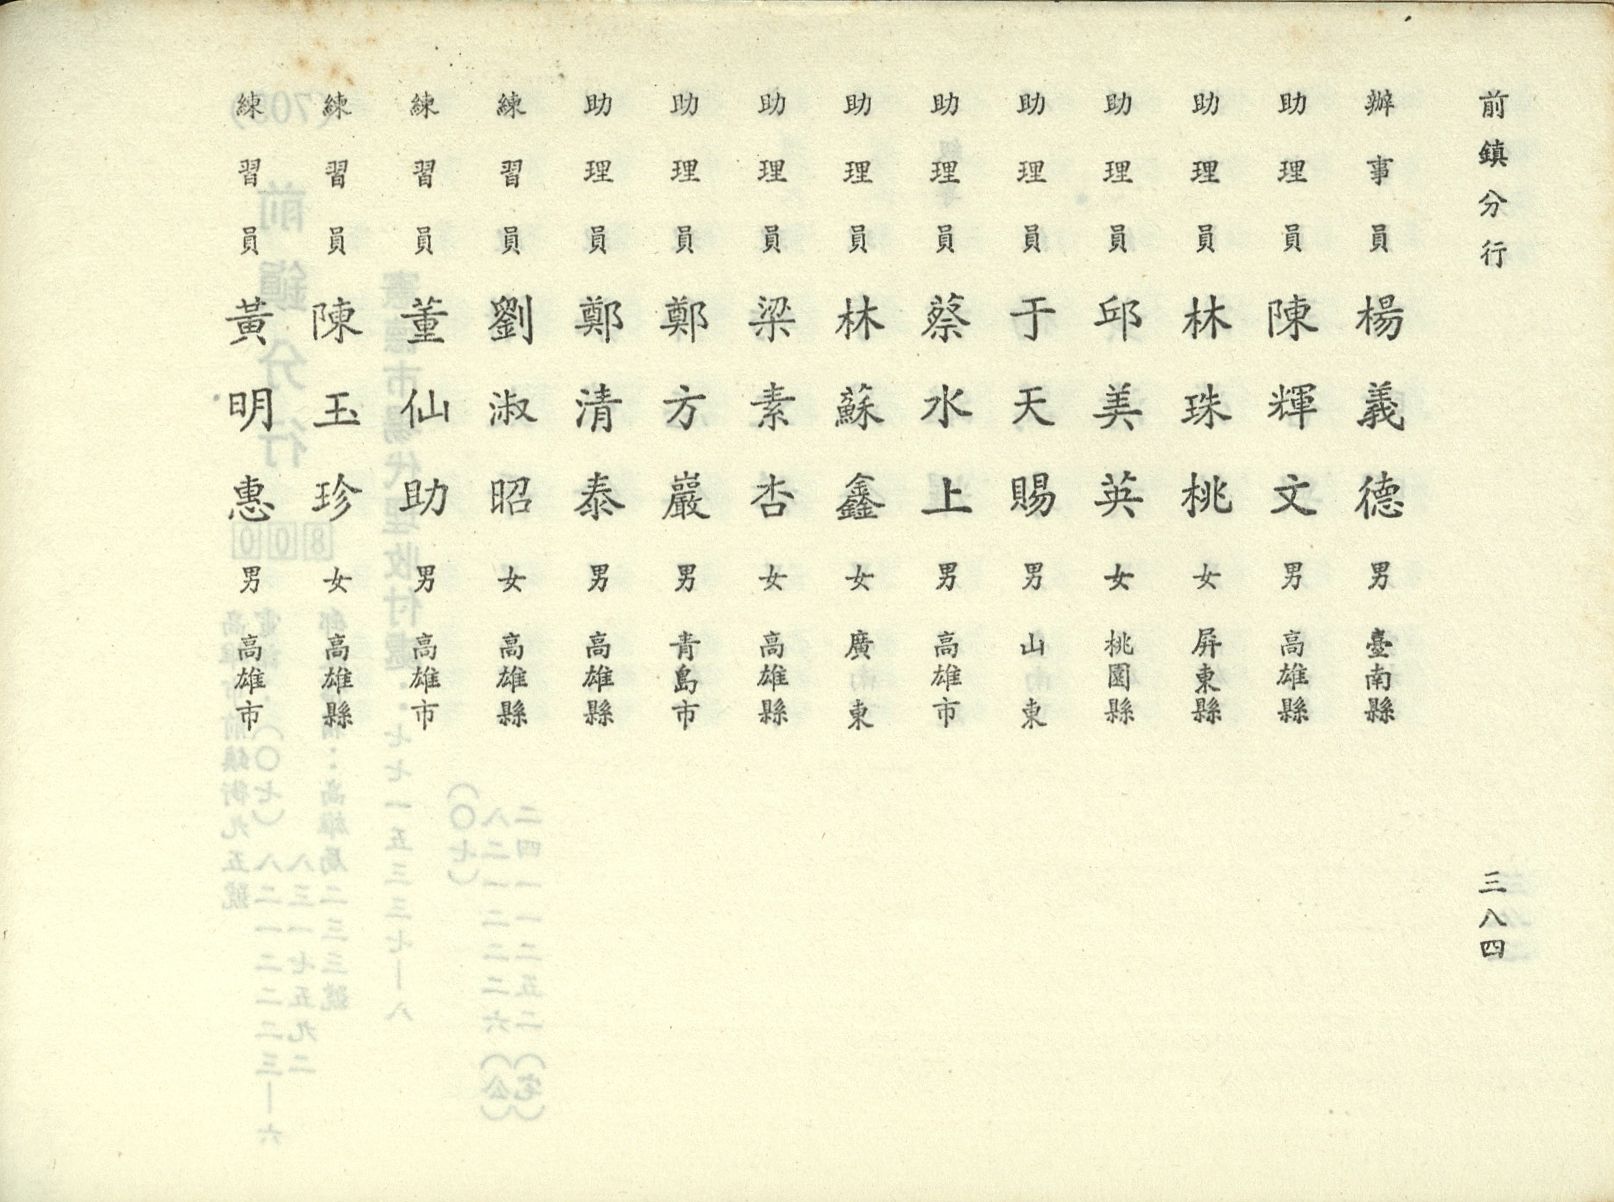 前鎮分行
三八四
辦事員 楊義德 男 臺南縣
助理員 陳輝文 男 高雄縣
助理員 林珠桃 女 屏東縣
助理員 邱美英 女 桃園縣
助理員 于天賜 男 山東
助理員 蔡水上 男 高雄市
助理員 林蘇鑫 女 廣東
助理員 梁素杏 女 高雄縣
助理員 鄭方巖 男 青島市
助理員 鄭清泰 男 高雄縣
練習員 劉淑昭 女 高雄縣
練習員 董仙助 男 高雄市
練習員 陳玉珍 女 高雄縣
練習員 黃明惠 男 高雄市